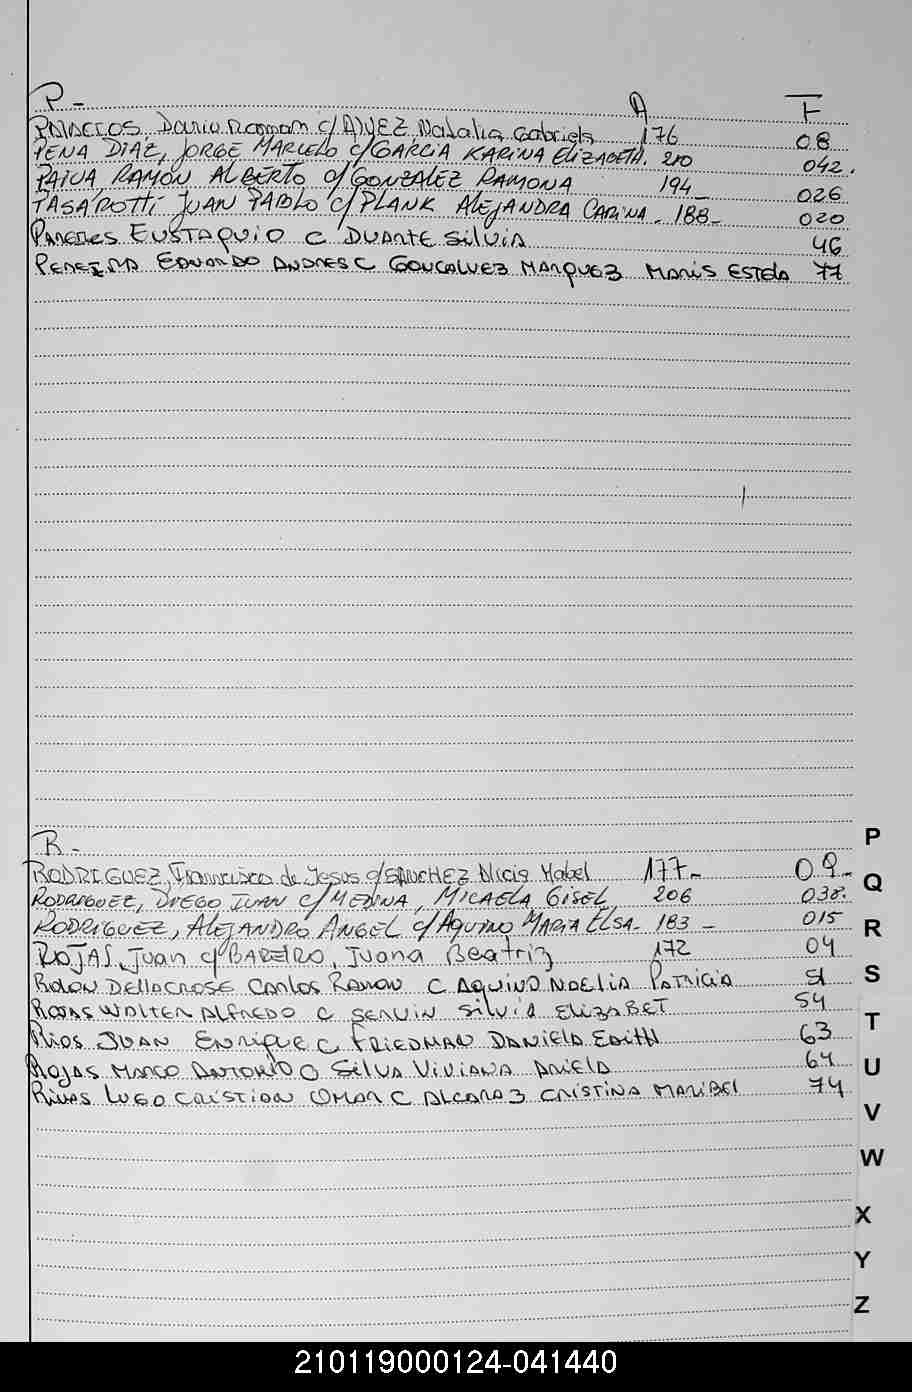 P- A F
PALACIOS, Dario Roman c/ ALVEZ Natalia Gabriela 176 08
PENA DIAZ, JORGE MARCELO c/ GARCIA KARINA ELIZABETH. 210 042.
PAIVA, RAMÓN ALBERTO c/ GONZALEZ RAMONA 194 - 026
PASAROTTI JUAN PABLO c/ PLANK ALEJANDRA CARINA - 188 - 020
PAREDES EUSTAQUIO C DUARTE SILVIA 46
PEREIRA EDUARDO ANDRES C GONCALVEZ MARQUEZ MARIS ESTELA 77
R-
RODRIGUEZ, Francisco de Jesus c/ SANCHEZ Alicia Mabel 177- 09-
RODRIGUEZ, DIEGO IVAN c/ MEDINA, MICAELA GISEL, 206 038.
RODRIGUEZ, ALEJANDRO ANGEL c/ AQUINO MARIA ELSA - 183 - 015
ROJAS, Juan c/ BAREIRO, Juana Beatriz 172 04
ROLON DELLACROSE CARLOS RAMON C AQUINO NOELIA PATRICIA 51
ROJAS WALTER ALFREDO C SERVIN SILVIA ELIZABET 54
RIOS JUAN ENRIQUE C FRIEDMAN DANIELA EDITH 63
ROJAS MARCO ANTONIO C SILVA VIVIANA ARIELA 64
RIVAS LUGO CRISTIAN OMAR C ALCARAZ CRISTINA MARIBEL 74
P
Q
R
S
T
U
V
W
X
Y
Z
210119000124-041440